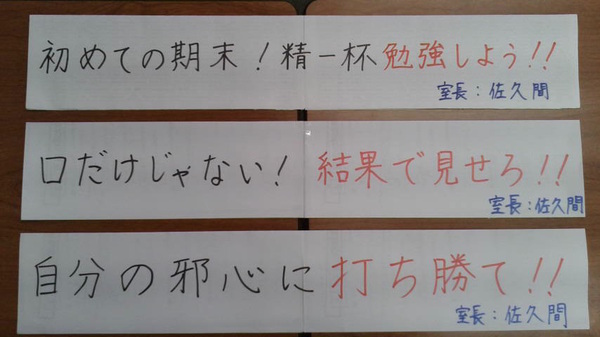 初めての期末！精一杯勉強しよう！！
室長：佐久間
口だけじゃない！結果で見せろ！！
室長：佐久間
自分の邪心に打ち勝て！！
室長：佐久間